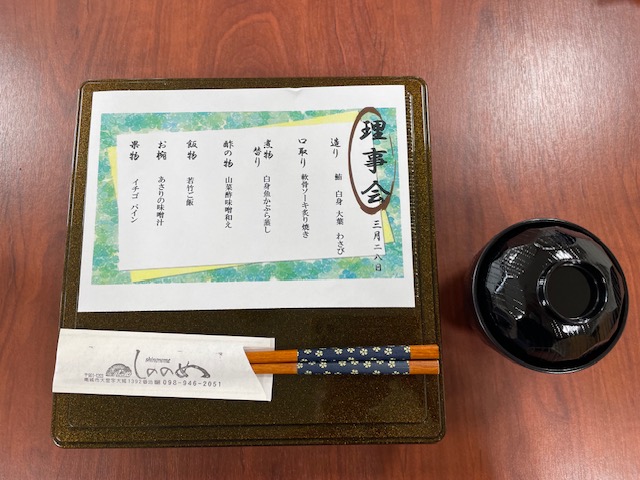 理事会
三月二八日
造り 鮪 白身 大葉 わさび
口取り 軟骨ソーキ炙り焼き
煮物替り 白身魚かぶら蒸し
酢の物 山菜酢味噌和え
飯物 若竹ご飯
お椀 あさりの味噌汁
果物 イチゴ パイン
shinonome
しののめ
098-946-2051